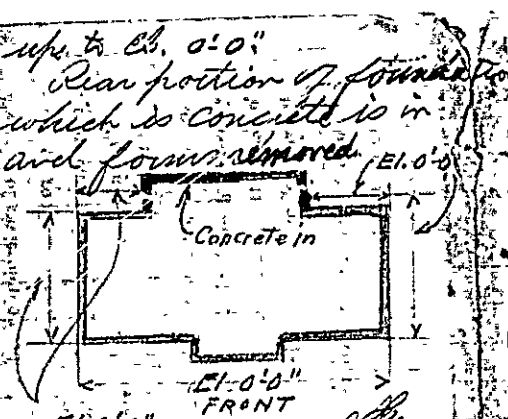 up to El. 0'-0".
Rear portion of foundation
which is concrete is in
and forms removed
El. 0'-0"
Concrete in
El-0'-0"
FRONT